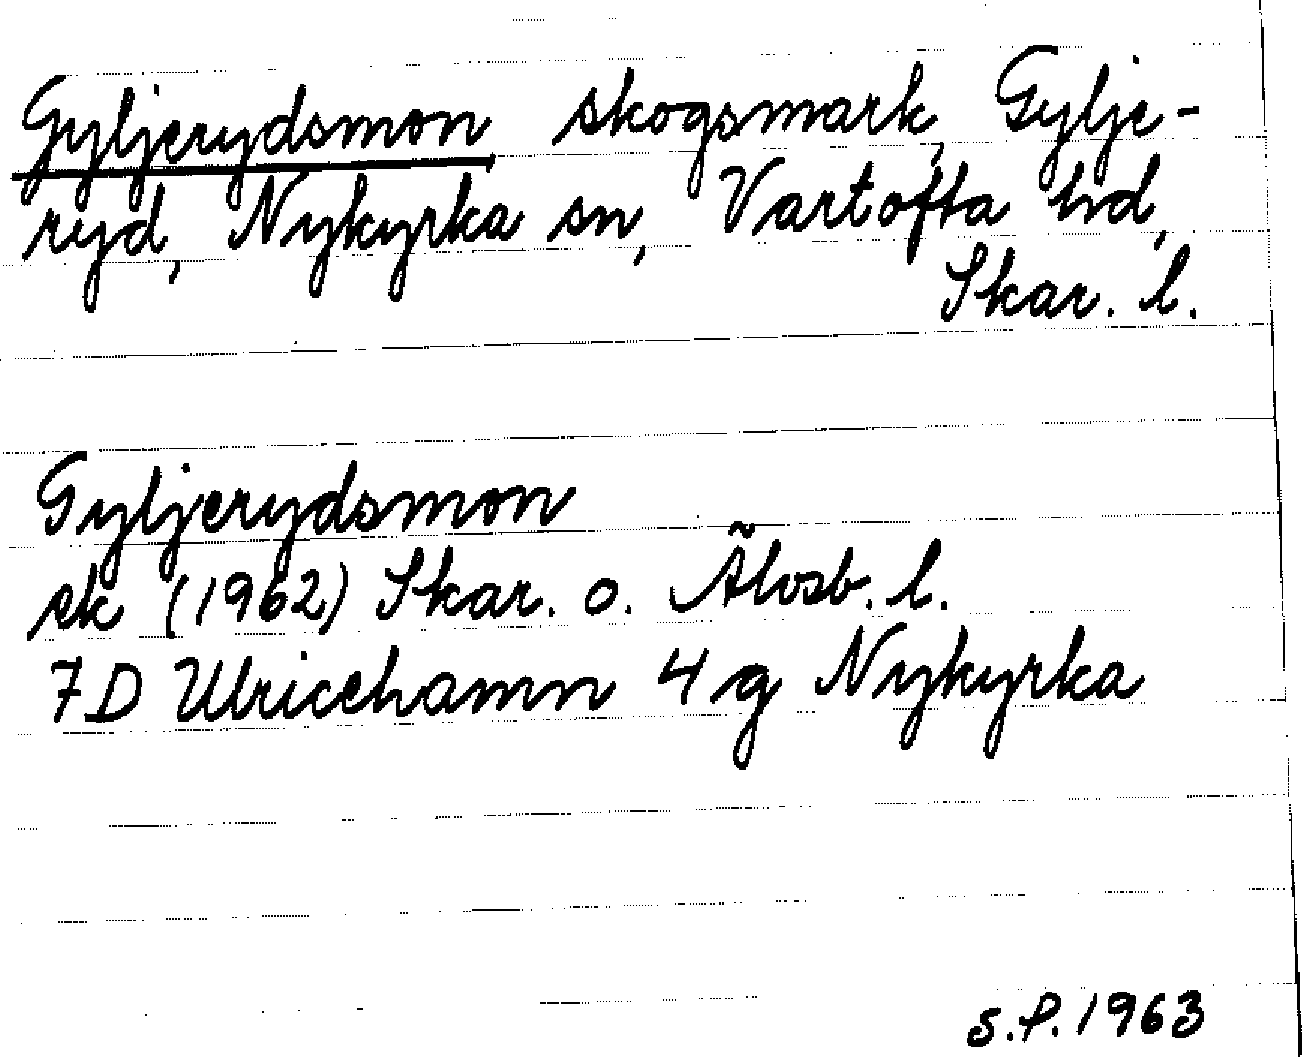 Gyljerydsmon skogsmark, Gylje-
ryd, Nykyrka sn, Vartofta hd,
Skar. l.
Gyljerydsmon
ek (1962) Skar. o. Älvsb. l.
7D Ulricehamn 4g Nykyrka
S.P. 1963